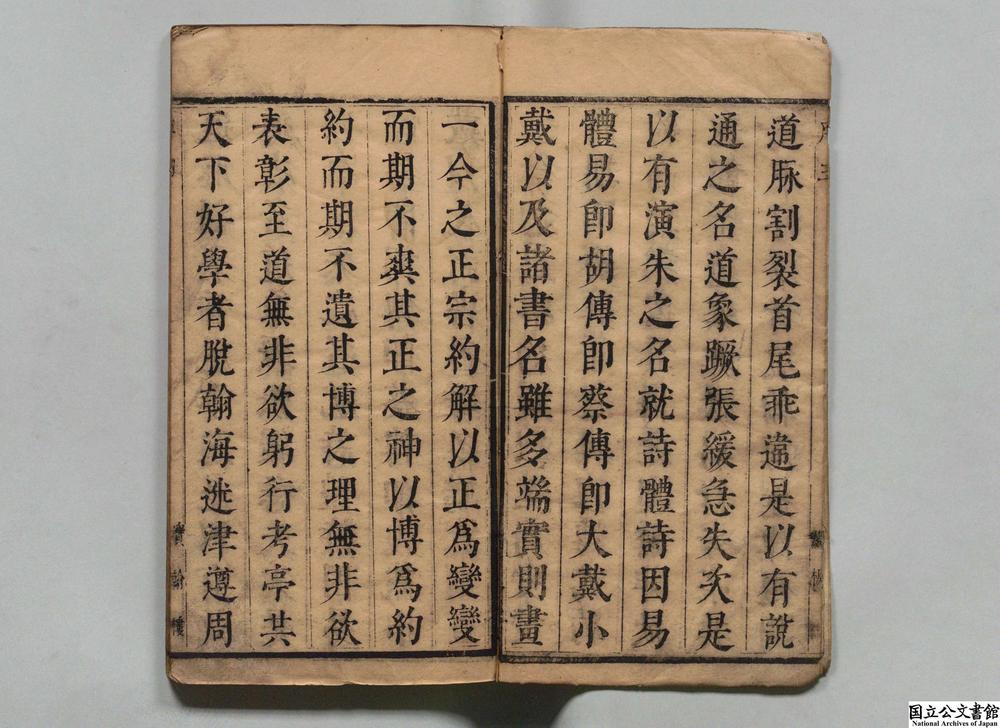 道脉割裂首尾乖違是以有說
通之名道象蹶張緩急失次是
以有演朱之名就詩體詩因易
體易即胡傳即蔡傳即大戴小
戴以及諸書名雖多端實則畫
一今之正宗約解以正爲變變
而期不爽其正之神以博爲約
約而期不遺其博之理無非欲
表彰至道無非欲躬行考亭共
天下好學者脫翰海迷津遵周
国立公文書館
National Archives of Japan